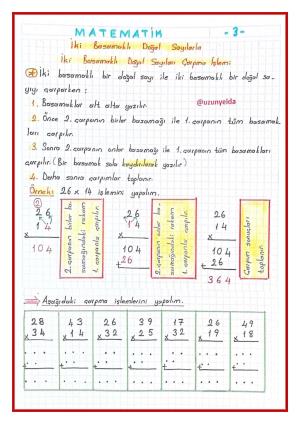 MATEMATİK -3-
İki Basamaklı Doğal Sayılarla
İki Basamaklı Doğal Sayıları Çarpma İşlemi
İki basamaklı bir doğal sayı ile iki basamaklı bir doğal sa-
yıyı çarparken;
1. Basamaklar alt alta yazılır.
@uzunyelda
2. Önce 2. çarpanın birler basamağı ile 1. çarpanın tüm basamak-
ları çarpılır.
3. Sonra 2. çarpanın onlar basamağı ile 1. çarpanın tüm basamakları
çarpılır. (Bir basamak sola kaydırılarak yazılır)
4. Daha sonra çarpımlar toplanır.
Örnek: 26 x 14 işlemini yapalım.
2
26
14
x
104
2. çarpanın birler ba-
samağındaki rakam
1. çarpanla çarpılır.
26
14
x
104
26
+
2. çarpanın onlar ba-
samağındaki rakam
1. çarpanla çarpılır.
26
14
x
104
+ 26
364
Çarpım sonuçları
toplanır.
Aşağıdaki çarpma işlemlerini yapalım.
28 43 26 39 17 26 49
x 34 x 14 x 32 x 25 x 32 x 19 x 18
... ... ... ... ... ... ...
+ ... + ... + ... + ... + ... + ... + ...